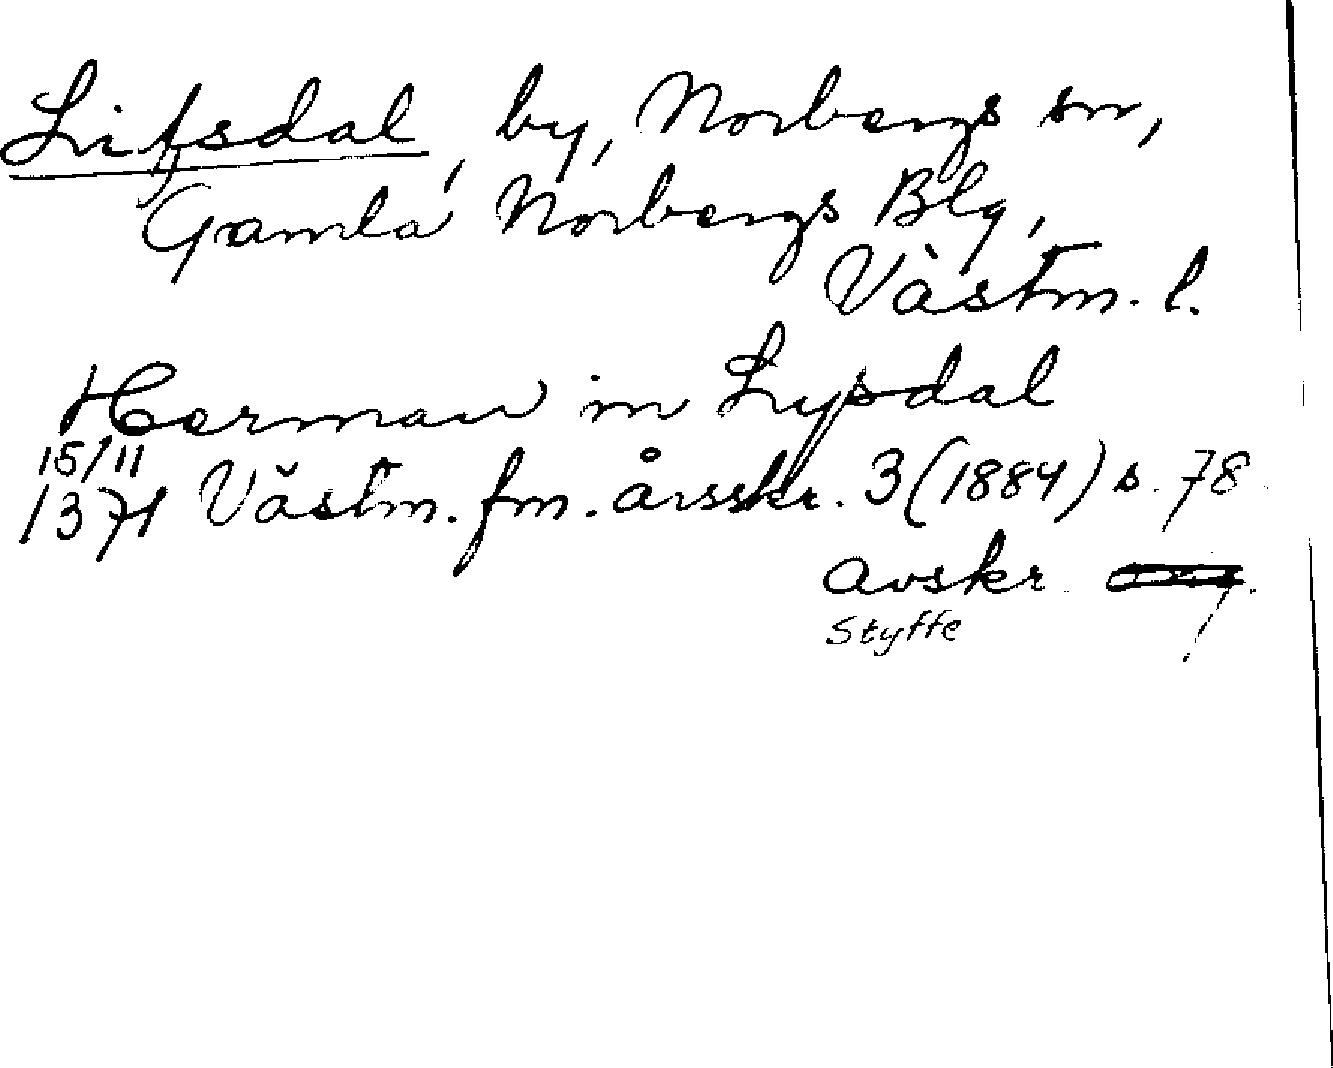 Lifsdal, by, Norbergs sn,
Gamla Norbergs Blg,
Västm. l.
Herman in Lypsdal
15/11
1371 Västm. fm. årsskr. 3 (1884) s. 78
avskr.
Styffe